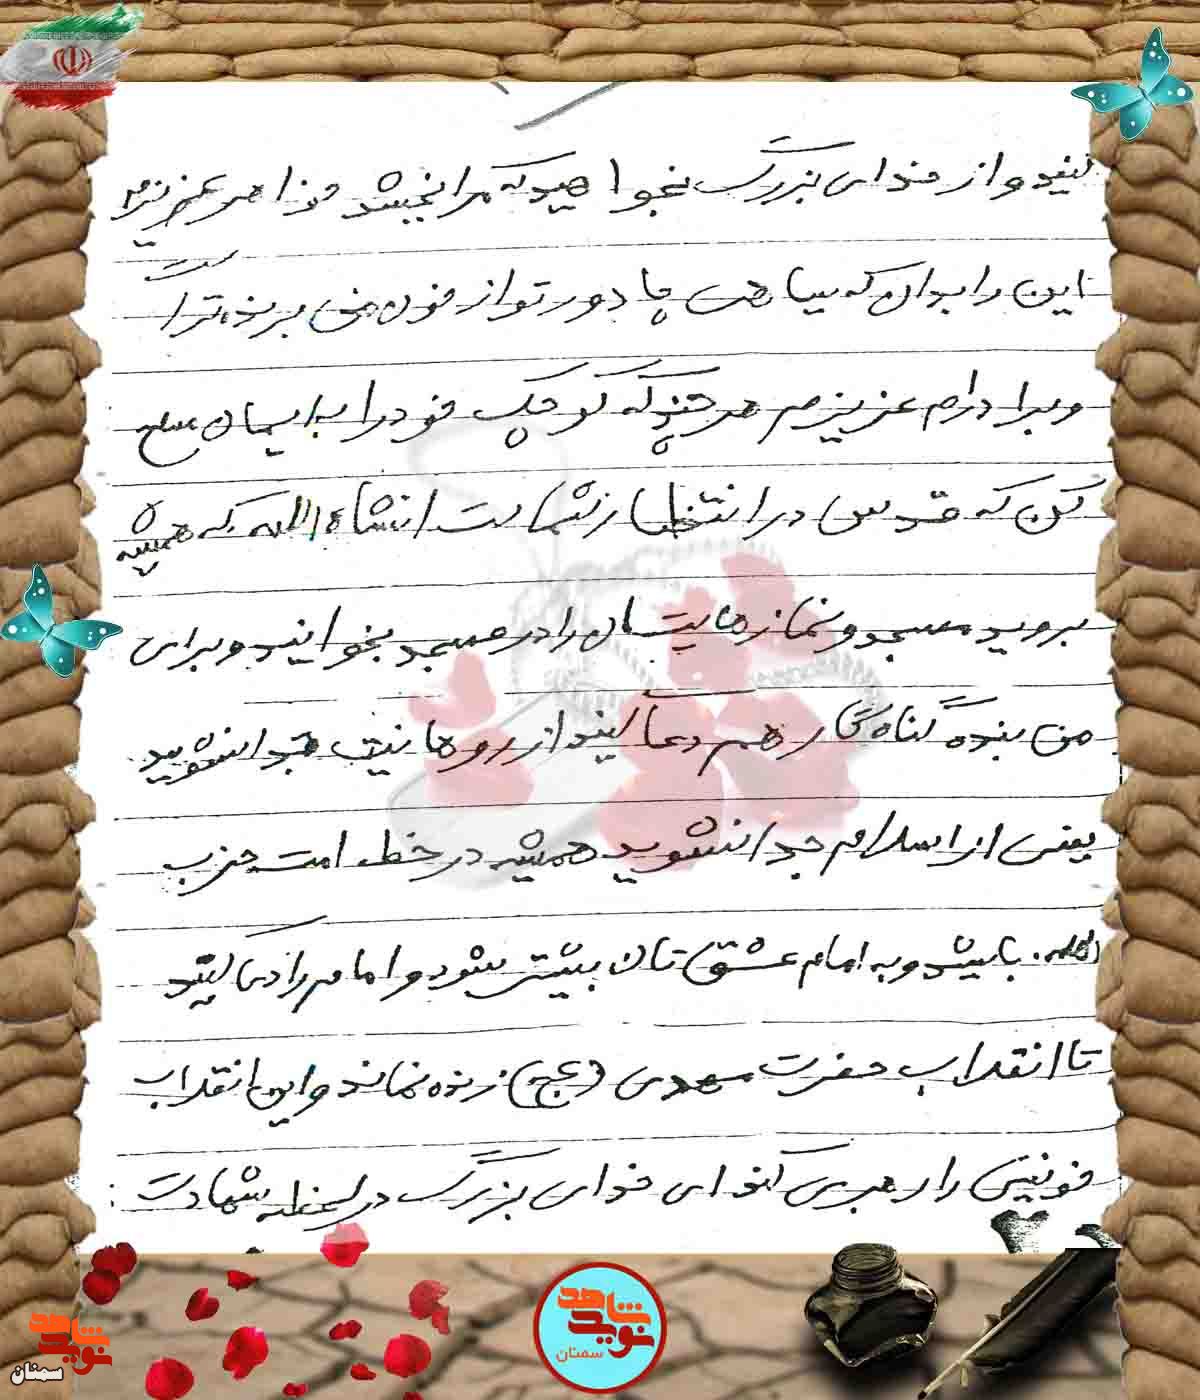 کنید و از خدای بزرگ بخواهید که مرا ببخشد خواهر عزیزم
این را بدان که سیاهی چادر تو از خون من برنده تر است
و برادرم عزیزم هر چند که کوچک خود را به ایمان مسلح
کن که قدس در انتظار شماست انشاءالله که همیشه
بروید مسجد و نمازهایتان را در مسجد بخوانید و برای
من بنده گناه گار هم دعا کنید از روحانیت جدا نشوید
یعنی از اسلام جدا نشوید همیشه در خط امت حزب
الله باشید و به امام عشق تان بیشتر شود و امام را دعا کنید
تا انقلاب حضرت مهدی (عج) زنده نماند و این انقلاب
خونین را رهبری کند ای خدای بزرگ در لحظه شهادت
نوید شاهد
سمنان
نوید شاهد
سمنان